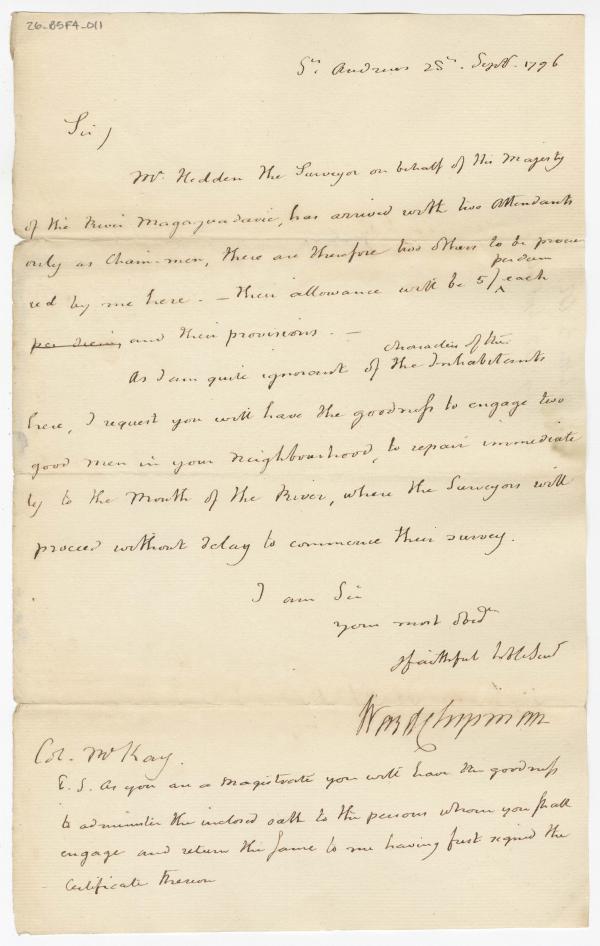 26-B5F4-011
St. Andrews 25th. Septr. 1796
Sir,
Mr. Hedden the Surveyor on behalf of His Majesty
of the River Magaguadavic, has arrived with two Attendants
only as Chain-men, there are therefore two others to be procu-
per diem
red by me here. – their allowance will be 5/ ^ each
per diem, and their provisions. –
characters of the
As I am quite ignorant of the Inhabitants
here, I request you will have the goodness to engage two
good men in your Neighbourhood, to repair immediate
ly to the Mouth of the River, where the Surveyors will
proceed without delay to commence their survey.
I am Sir
your most obedt.
& faithful hble Servt
Ward Chipman
Col. McKay.
P.S. As you are a Magistrate you will have the goodness
to administer the inclosed oath to the persons whom you shall
engage and return the same to me having first signed the
Certificate thereon